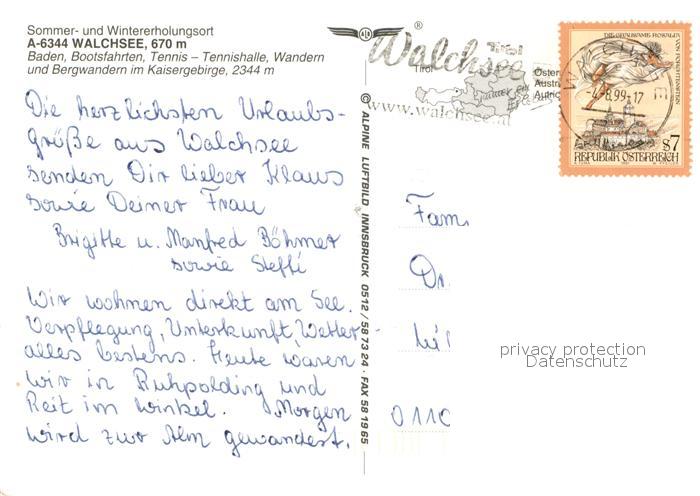 Sommer- und Wintererholungsort
A-6344 WALCHSEE, 670 m
Baden, Bootsfahrten, Tennis – Tennishalle, Wandern
und Bergwandern im Kaisergebirge, 2344 m
Die herzlichsten Urlaubs-
grüße aus Walchsee
senden Dir lieber Klaus
sowie Deiner Frau
Brigitte u. Manfred Böhmer
sowie Steffi
Wir wohnen direkt am See.
Verpflegung, Unterkunft, Wetter
alles bestens. Heute waren
wir in Ruhpolding und
Reit im Winkel. Morgen
wird zur Alm gewandert.
® ALPINE LUFTBILD INNSBRUCK 0512/58 73 24 · FAX 58 19 65
®
Walchsee
Tirol
Tirol
www.walchsee.at
-4.-8.99-17
DIE GRAUSAME ROSALIA
VON FORCHTENSTEIN
S7
REPUBLIK ÖSTERREICH
Fam.
Dr.
0110
privacy protection
Datenschutz